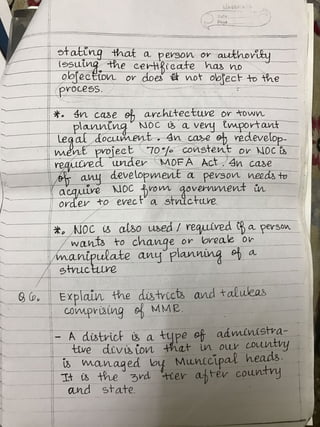 stating that a person or authority
issuing the certificate has no
objection or does not object to the
process.
*. In case of architecture or town
planning NOC is a very important
legal document. In case of redevelop-
ment project 70% constent or NOC is
required under MOFA Act. In case
of any development a person needs to
acquire NOC from government in
order to erect a structure.
*. NOC is also used / required if a person
wants to change or break or
manipulate any planning of a
structure
Q 6. Explain the districts and talukas
comprising of MMR.
- A district is a type of administra-
tive division that in our country
is managed by Municipal heads.
It is the 3rd tier after country
and state.